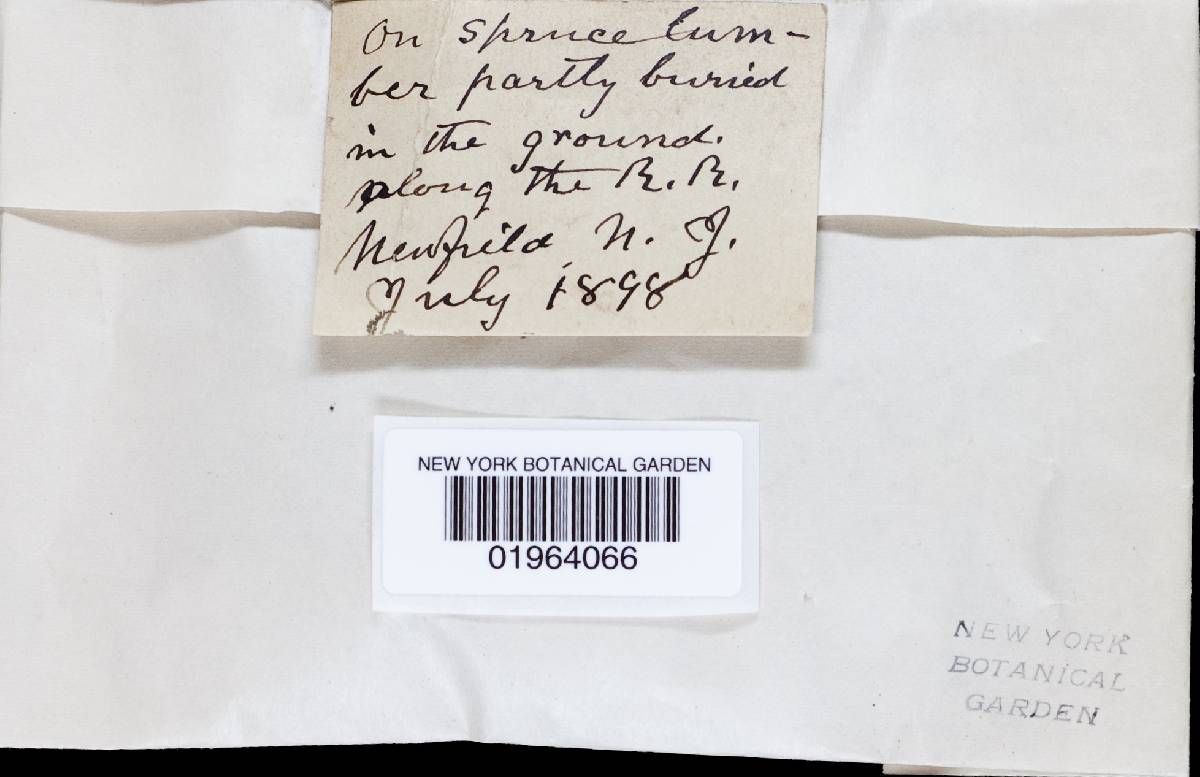 On spruce lum-
ber partly buried
in the ground.
along the R. R.
Newfield N. J.
July 1898
NEW YORK BOTANICAL GARDEN
01964066
NEW YORK
BOTANICAL
GARDEN